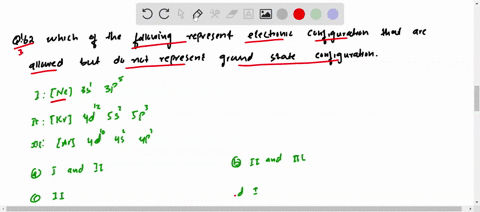 Q:62 which of the following represent electronic configuration that are
3
allowed but do not represent ground state configuration.
I: [Ne] 3s¹ 3p⁵
II: [Kr] 4d¹² 5s² 5p³
III: [Ar] 4d¹⁰ 4s² 4p¹
(a) I and II
(b) II and III
(c) II
.d I